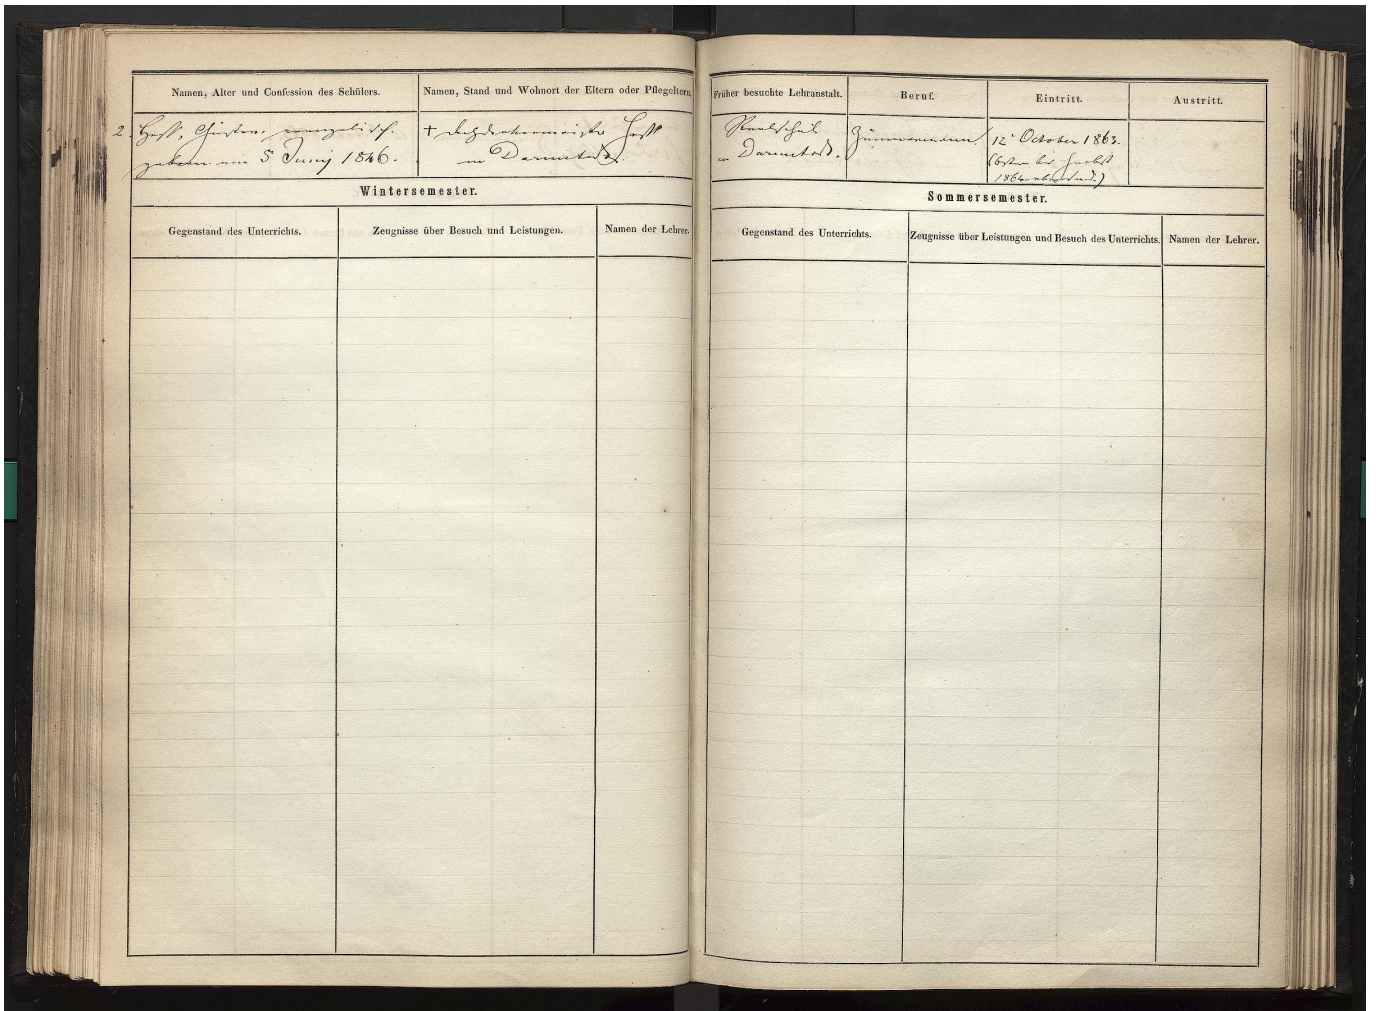 Namen, Alter und Confession des Schülers.
Namen, Stand und Wohnort der Eltern oder Pflegeltern.
2. Heß, Christian, evangelisch.
geboren am 5 Junij 1846.
† Heß
in Darmstadt.
Wintersemester.
Gegenstand des Unterrichts.
Zeugnisse über Besuch und Leistungen.
Namen der Lehrer.
Früher besuchte Lehranstalt.
Beruf.
Eintritt.
Austritt.
Realschule
in Darmstadt.
Zimmermann
12t October 1863.
Herbst
Sommersemester.
Gegenstand des Unterrichts.
Zeugnisse über Leistungen und Besuch des Unterrichts.
Namen der Lehrer.